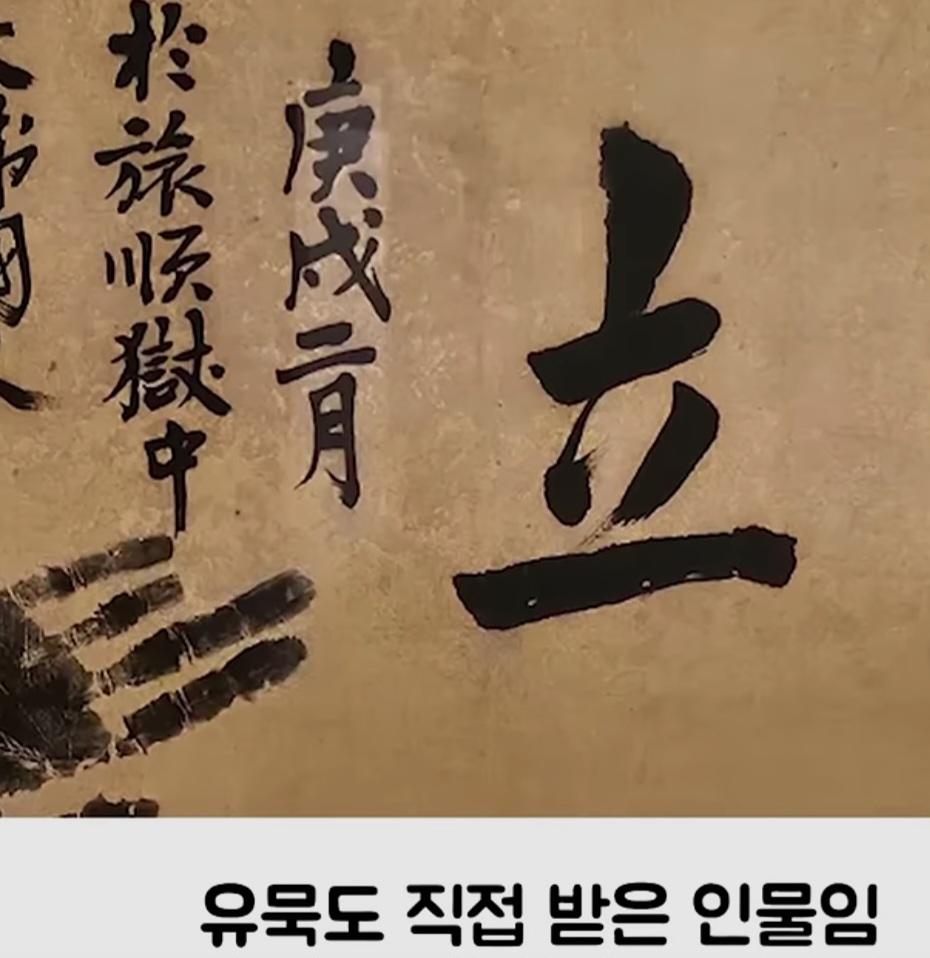 立
庚戌二月
於旅順獄中
國
유묵도 직접 받은 인물임